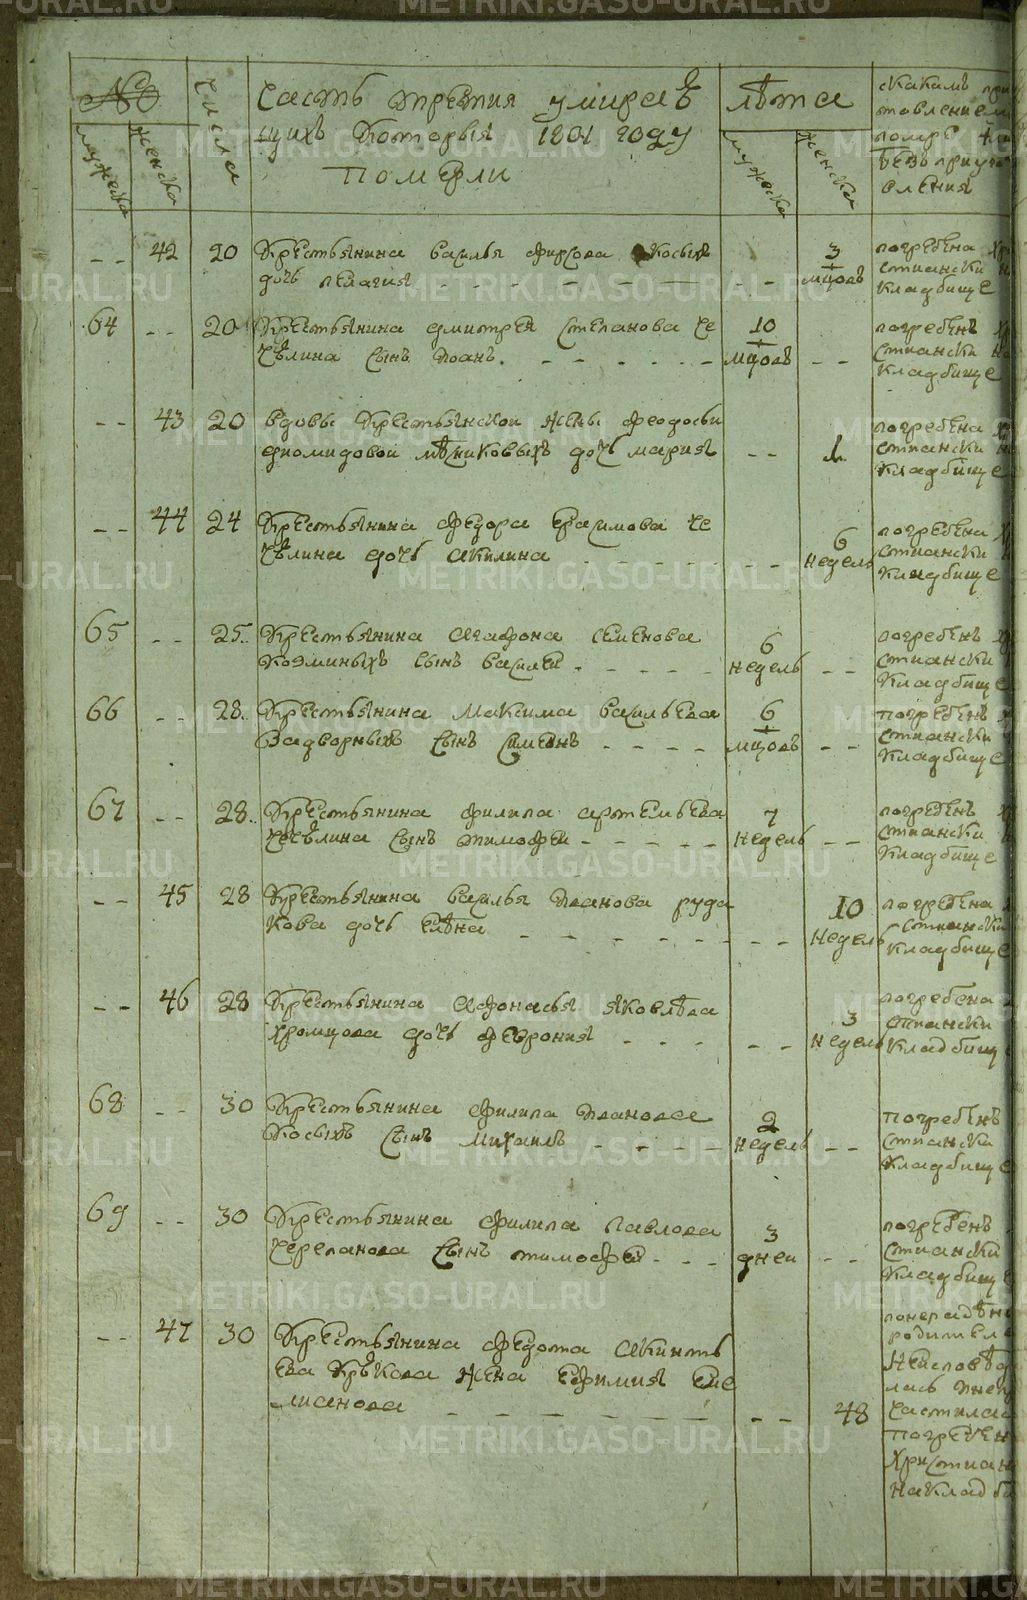 №
мужеска
женска
числа
часть третия умираѣ
щихъ которыя 1801 году
померли
лѣта
мужеска
женска
с какимъ при
товлениемъ
помре
безъ приуго
вления
-- 42 20 Крестьянина василья фирсова косыхъ
дочь пелагия
3
мцовъ
погребена хри
стиански на
кладбище
64 -- 20 Крестьянина дмитрея степанова че
чѣлина сынъ иоанъ.
10
мцовъ --
погребенъ х
стиански на
кладбище
-- 43 20 вдовы крестьянской жены феодосьи
диомидовой мѣхниковыхъ дочь мария --
погребена х
стиански на
кладбище
-- 44 24 Крестьянина федора ерасимова че
чѣлина дочь акилина --
6
недель
погребена х
стиански
кладбище
65 -- 25 Крестьянина агафона семенова
козминыхъ сынъ василей
6
недель --
погребенъ х
стиански
кладбище
66 -- 28 Крестьянина максима васильева
задворныхъ сынъ симеонъ
6
мцовъ --
погребенъ х
стиански
кладбище
67 -- 28 Крестьянина филипа артемьева
чечѣлина сынъ тимофей
7
недель --
погребенъ х
стиански
кладбище
-- 45 28 Крестьянина василья иванова руда
кова дочь елѣна --
10
недель
погребена х
стиански
кладбище
-- 46 28 Крестьянина афонасья яковлѣва
хромцова дочь феврония --
3
недель
погребена
стиански
кладбищ
68 -- 30 Крестьянина филипа иванова
косыхъ сынъ михаилъ
2
недель --
погребенъ
стиански
кладбище
69 -- 30 Крестьянина филипа павлова
черепанова сынъ тимофей
3
дней --
погребенъ
стиански
кладбище
-- 47 30 Крестьянина федота акинть
ева крѣкова жена ефимия еме
лианова -- 48
понерадѣни
родителе
неисповѣд
лась ине
частилас
погребен
христиан
накладби
METRIKI.GASO-URAL.RU